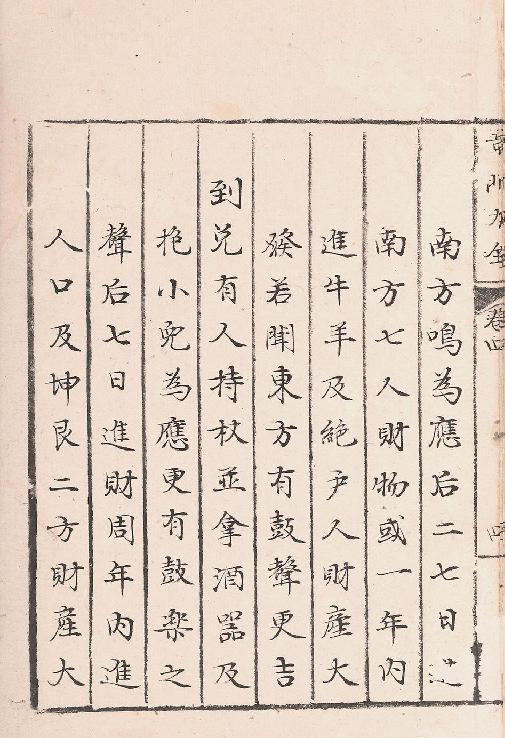 卷四
南方鳴為應后二七日進
南方七人財物或一年内
進牛羊及絶户人財産大
發若聞東方有鼓聲更吉
到兑有人持杖並拿酒器及
抱小兒為應更有鼓樂之
聲后七日進財周年内進
人口及坤艮二方財産大